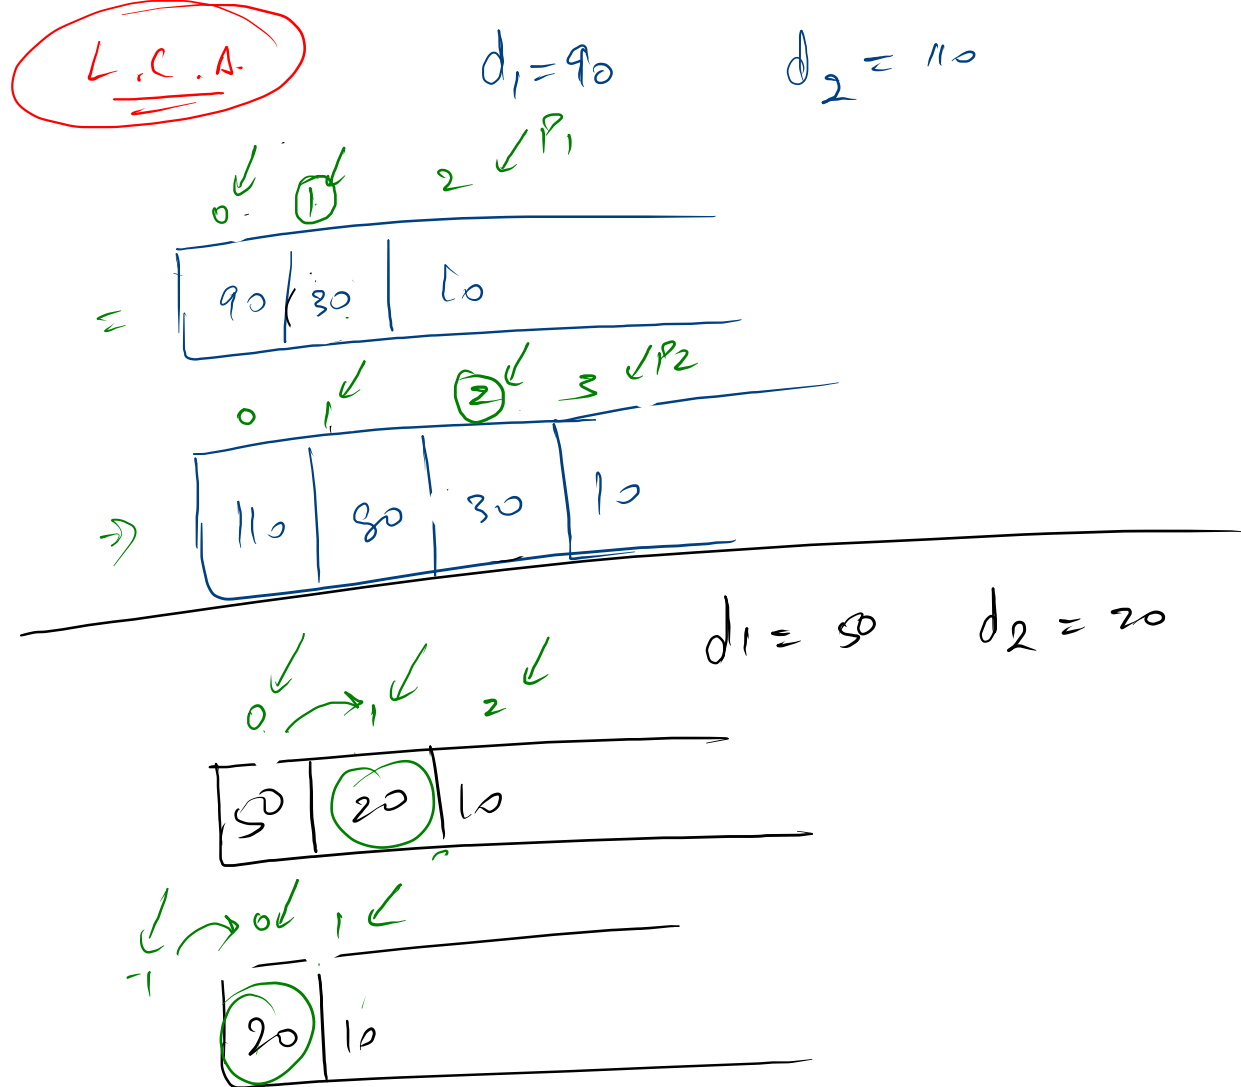 L.C.A.
d1 = 90 d2 = 110
0 1 2 P1
90 30 10
0 1 2 3 P2
110 80 30 10
d1 = 50 d2 = 20
0 1 2
50 20 10
-1 0 1
20 10